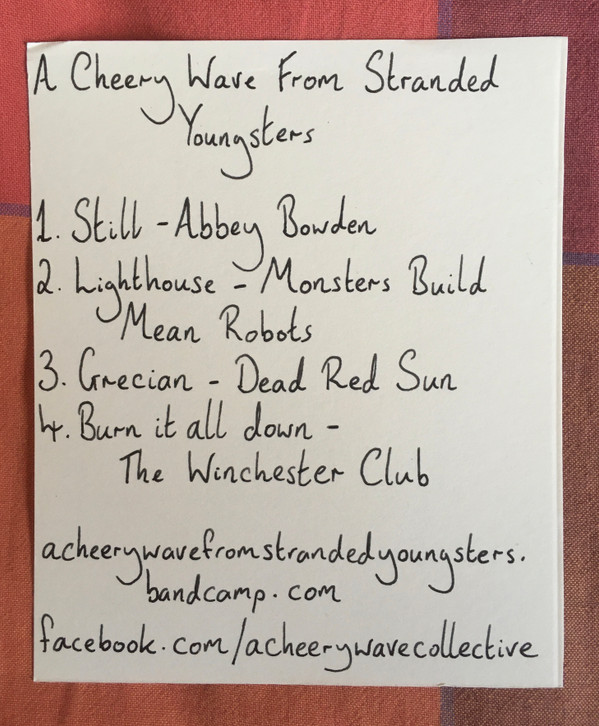 A Cheery Wave From Stranded
Youngsters
1. Still - Abbey Bowden
2. Lighthouse - Monsters Build
Mean Robots
3. Grecian - Dead Red Sun
4. Burn it all down -
The Winchester Club
acheerywavefromstrandedyoungsters.
bandcamp.com
facebook.com/acheerywavecollective